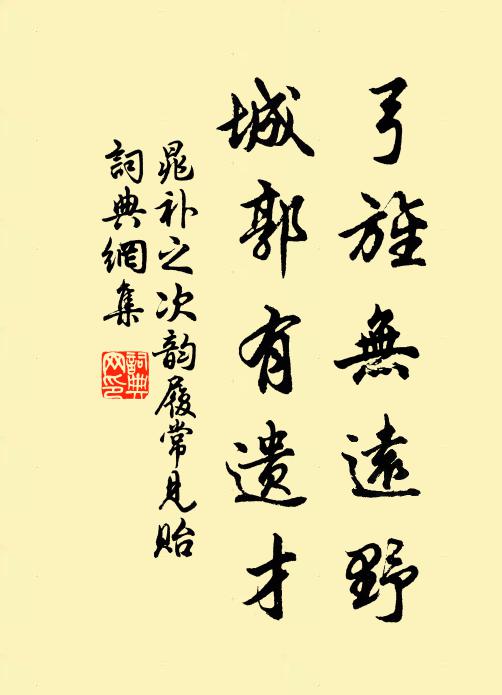 弓旌無遠野
城郭有遺才
晁补之次韵履常見貽
詞典網集
詞典
网印